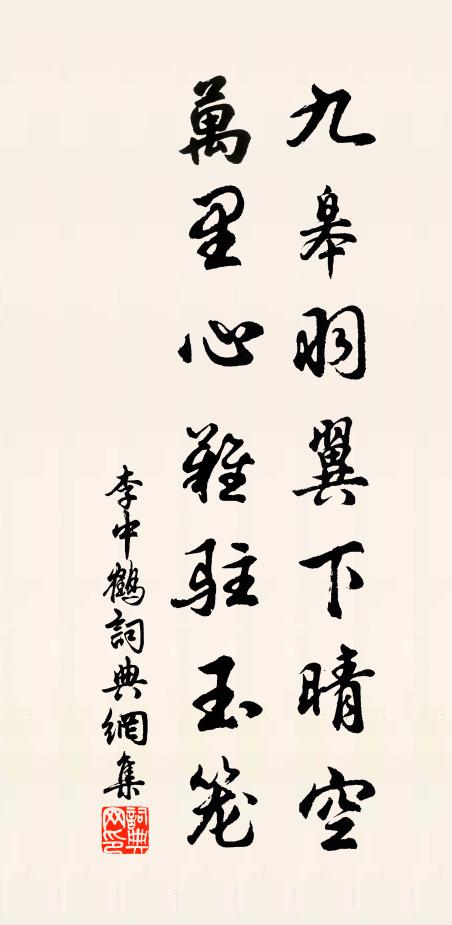 九皋羽翼下晴空
萬里心難駐玉笼
李中鶴詞典網集
詞典網印